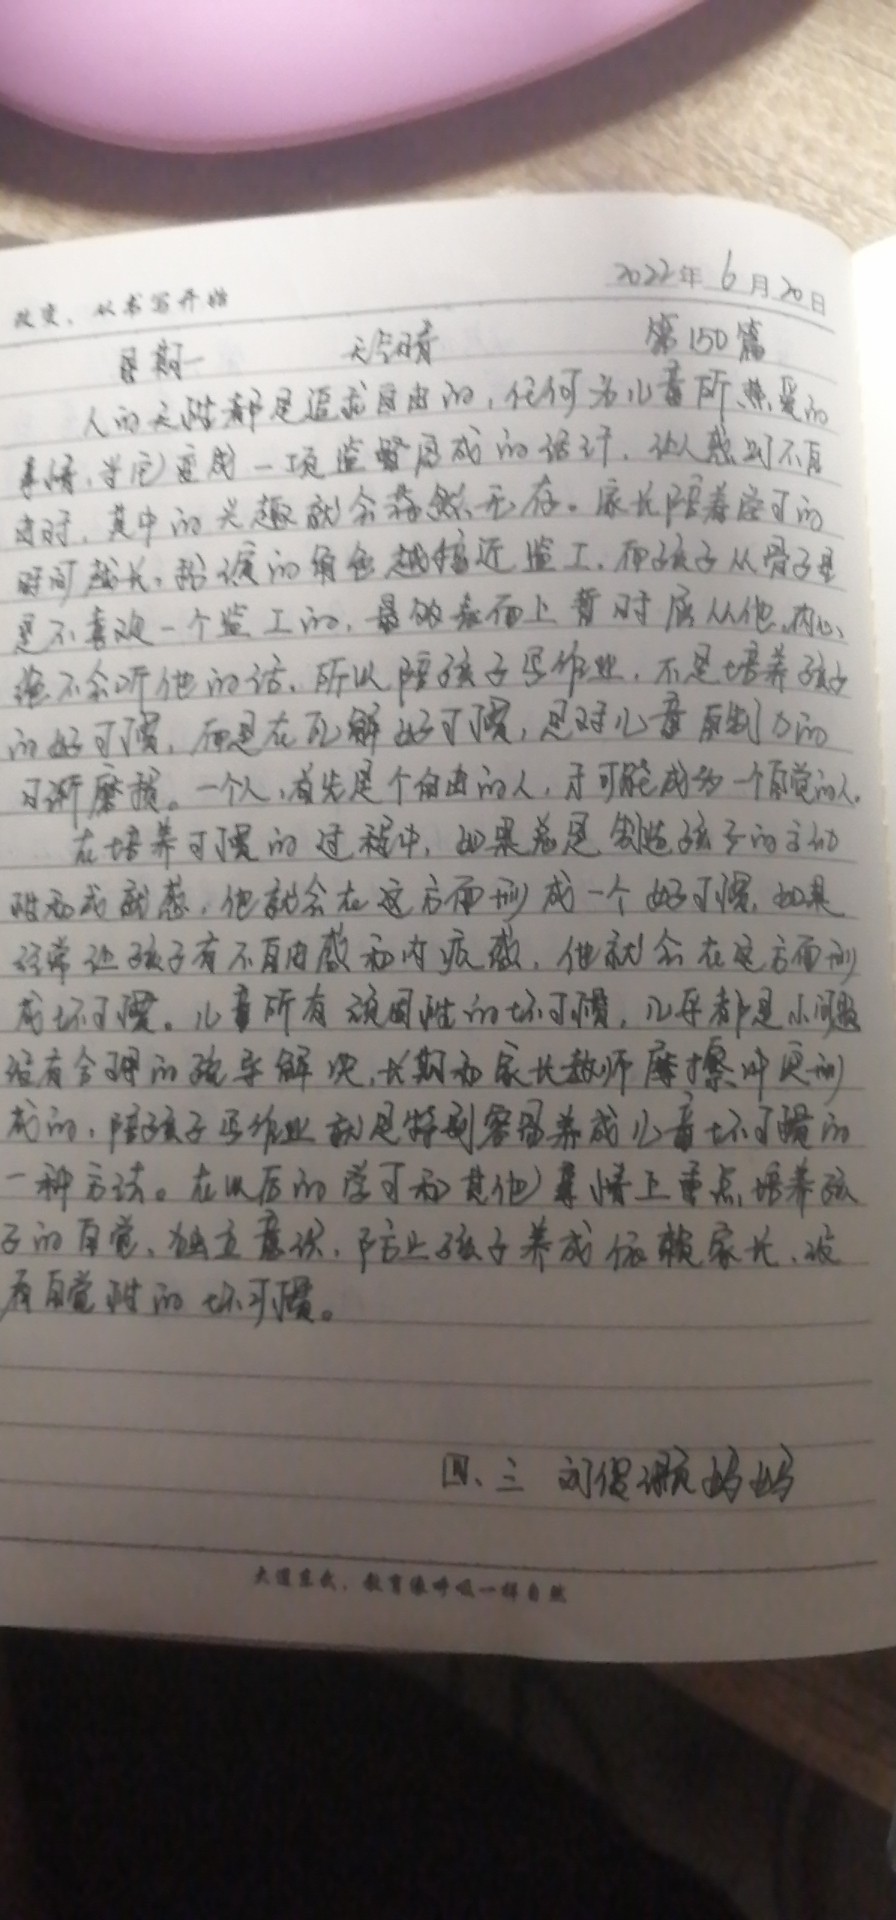 改变，从书写开始
2022年6月20日
星期一 天气晴 第150篇
人的天性都是追求自由的，任何为儿童所热爱的
事情，当它变成一项监督完成的活计，让人感到不自
由时，其中的兴趣就会荡然无存。家长陪着孩子的
时间越长，扮演的角色越接近监工，而孩子从骨子里
是不喜欢一个监工的，最多表面上暂时屈从他，内心
绝不会听他的话，所以陪孩子写作业，不是培养孩子
的好习惯，而是在瓦解好习惯，是对儿童自制力的
日渐磨损。一个人，首先是个自由的人，才可能成为一个自觉的人。
在培养习惯的过程中，如果总是制造孩子的主动
性和成就感，他就会在这方面形成一个好习惯，如果
经常让孩子有不自由感和内疚感，他就会在这方面形
成坏习惯。儿童所有顽固性的坏习惯，几乎都是小问题
没有合理的疏导解决，长期和家长教师摩擦冲突形
成的，陪孩子写作业就是特别容易养成儿童坏习惯的
一种方法。在以后的学习和其他事情上重点培养孩
子的自觉、独立意识，防止孩子养成依赖家长，没
有自觉性的坏习惯。
四、三 刘偲航妈妈
大道至氏，教育像呼吸一样自然